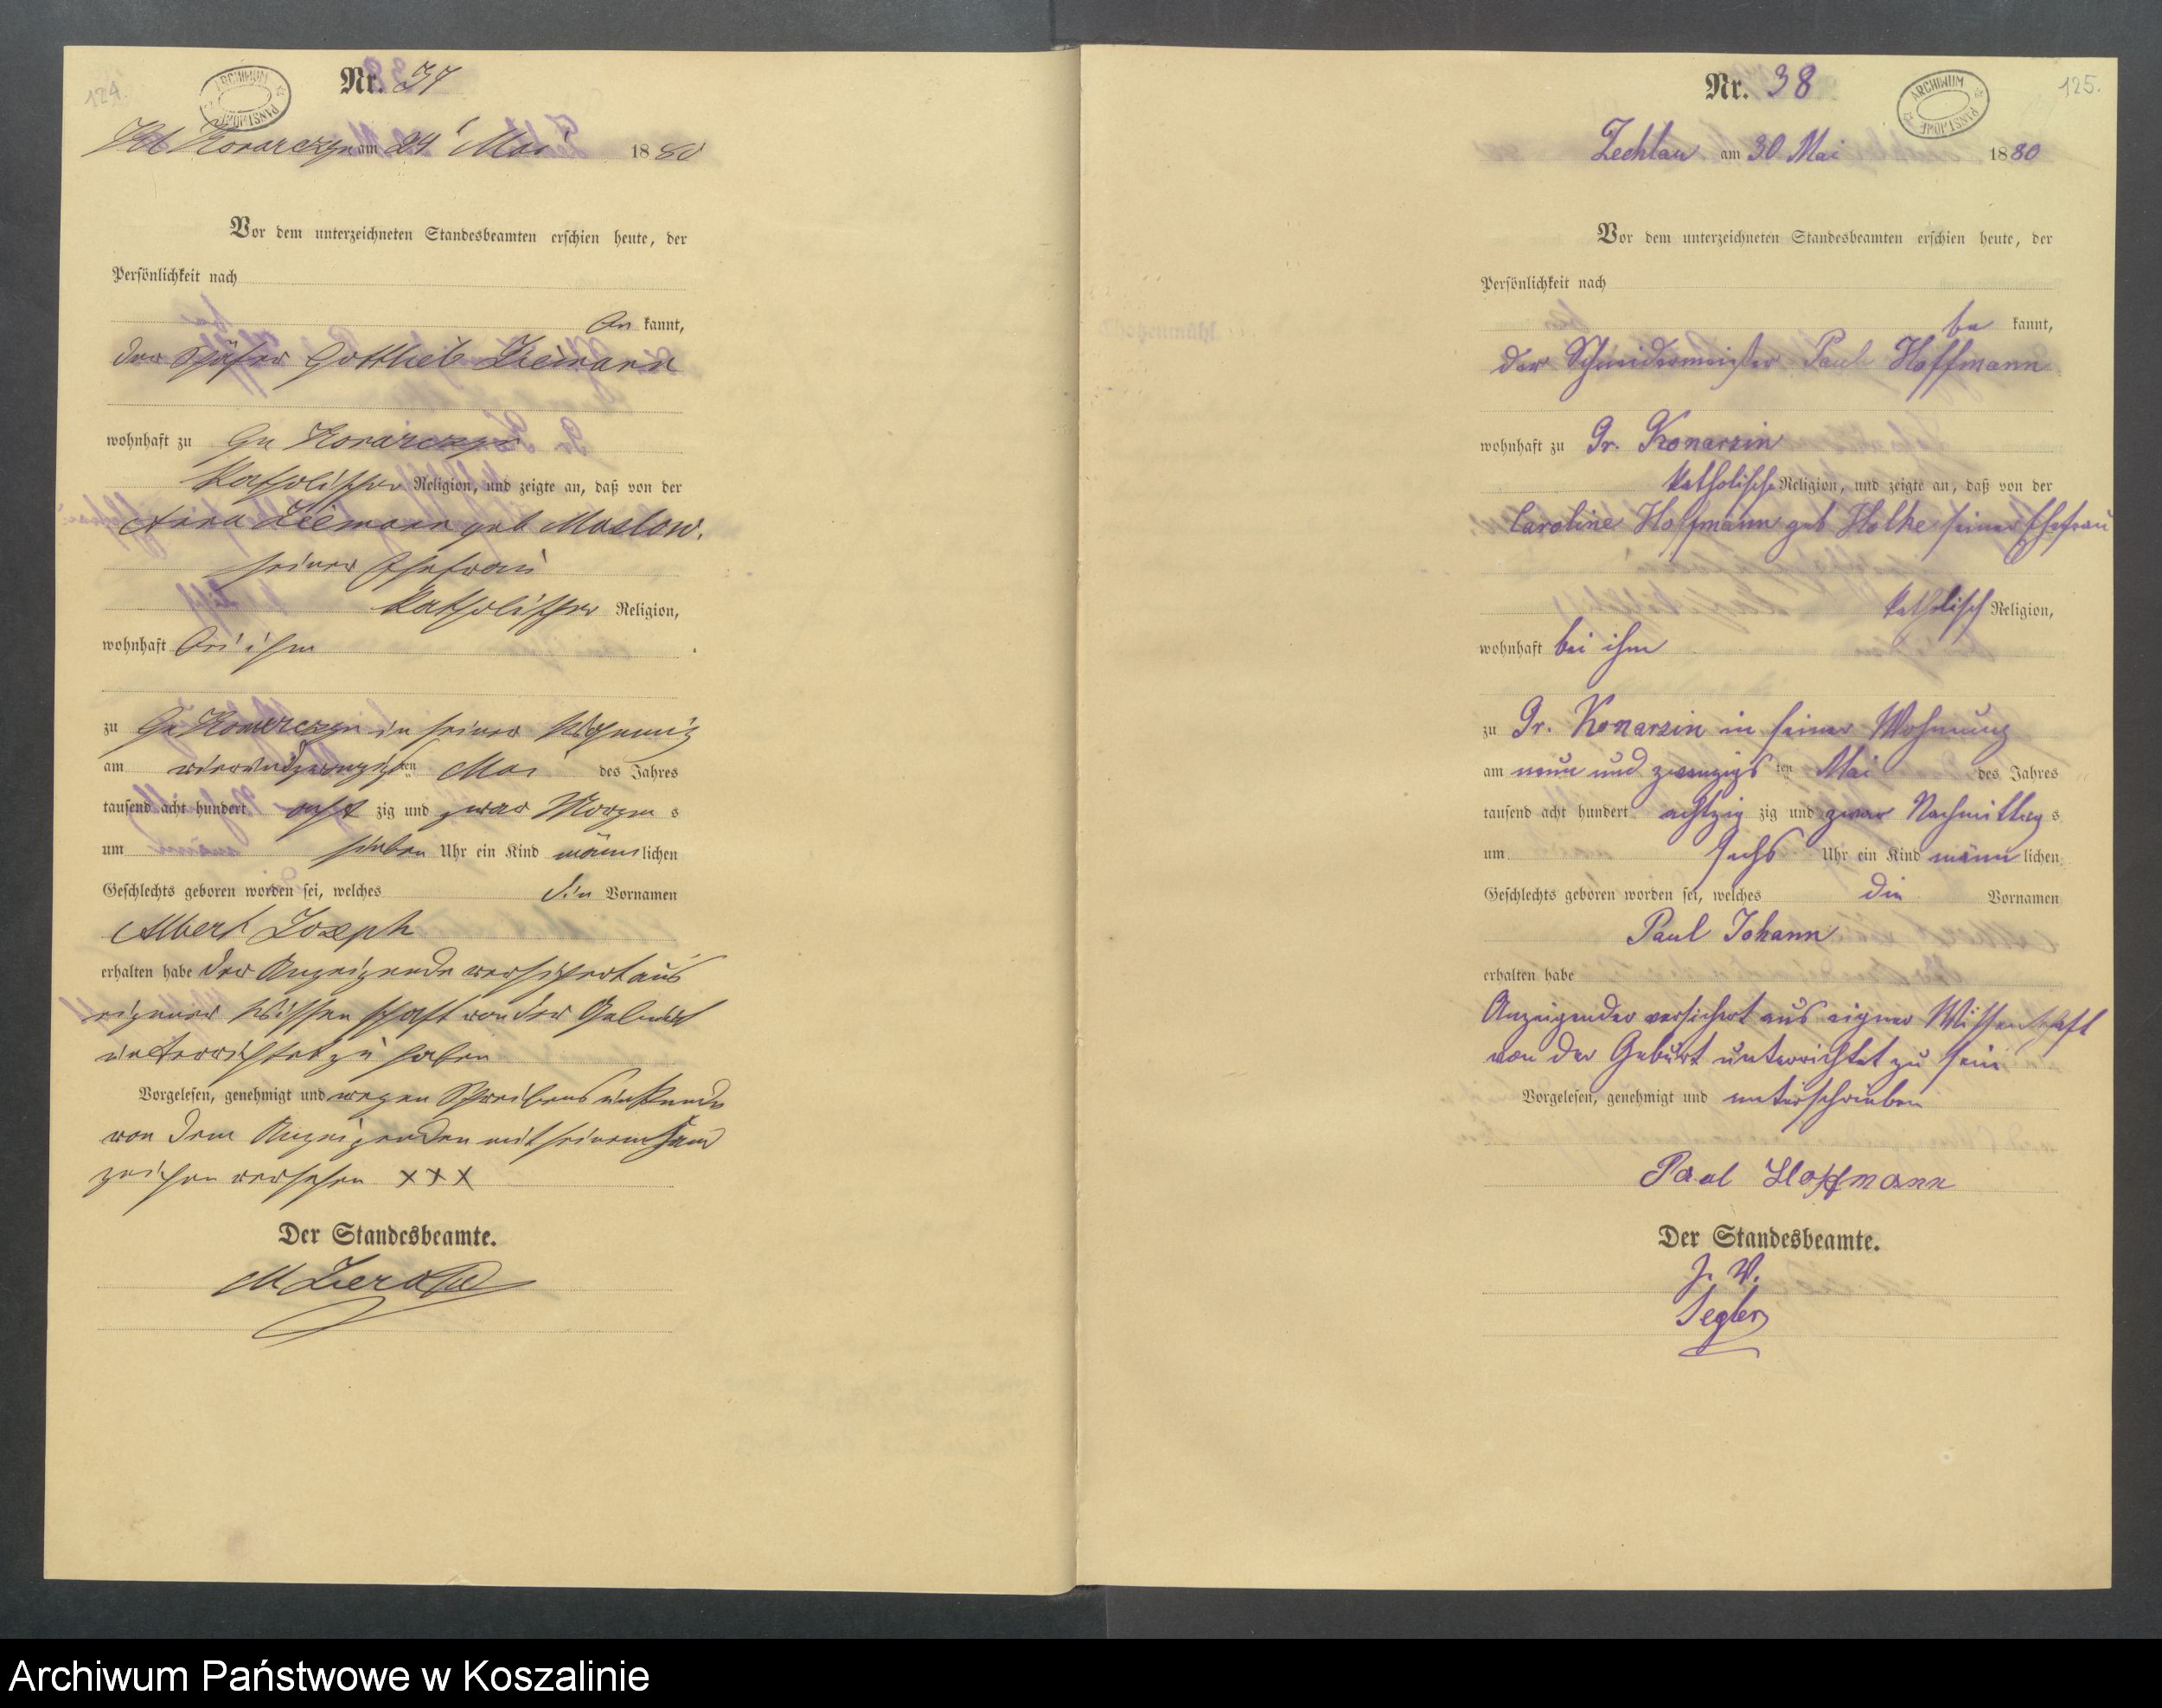 124.
ARCHIWUM PAŃSTWOWE
Nr. 37
Kl Konarczyn am 24 Mai 1880
Vor dem unterzeichneten Standesbeamten erschien heute, der
Persönlichkeit nach
be kannt,
der Schäfer Gottlieb Ziemann
wohnhaft zu Gr Konarczyn
katholischer Religion, und zeigte an, daß von der
Anna Ziemann geb Maslow.
seiner Ehefrau
katholischer Religion,
wohnhaft bei ihm
zu Gr Konarczyn in seiner Wohnung
am vierundzwanzigsten Mai des Jahres
tausend acht hundert acht zig und zwar Morgen s
um sieben Uhr ein Kind männlichen
Geschlechts geboren worden sei, welches die Vornamen
Albert Joseph
erhalten habe der Anzeigende versichert aus
eigener Wissenschaft von der Geburt
unterrichtet zu haben
Vorgelesen, genehmigt und wegen Schreibens unkunde
von dem Anzeigenden mit seinem Hand
zeichen versehen XXX
Der Standesbeamte.
125.
ARCHIWUM PAŃSTWOWE
Nr. 38
Zechlau am 30 Mai 1880
Vor dem unterzeichneten Standesbeamten erschien heute, der
Persönlichkeit nach
be kannt,
der Schneidermeister Paul Hoffmann
wohnhaft zu Gr. Konarzin
katholische Religion, und zeigte an, daß von der
Caroline Hoffmann geb Holke seiner Ehefrau
katholisch Religion,
wohnhaft bei ihm
zu Gr. Konarzin in seiner Wohnung
am neun und zwanzigsten Mai des Jahres
tausend acht hundert achtzig zig und zwar Nachmittag s
um sechs Uhr ein Kind männlichen
Geschlechts geboren worden sei, welches die Vornamen
Paul Johann
erhalten habe
Anzeigender versichert aus eigner Wissenschaft
von der Geburt unterrichtet zu sein
Vorgelesen, genehmigt und unterschrieben
Paul Hoffmann
Der Standesbeamte.
J. V.
Segler
Archiwum Państwowe w Koszalinie